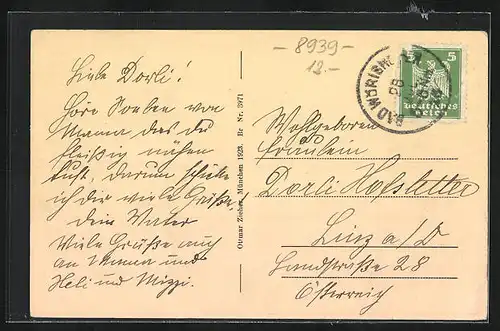 – 8939 –
12.–
BAD WÖRISH
5
Deutsches
Reich
Liebe Dorli!
Höre Soeben von
Mama das du
fleißig nähen
tust, darum schicke
ich dir viele Grüße,
dein Vater
Viele Grüße auch
an Mama und
Heli und Mizzi.
Ottmar Zieher, München 1923. Br Nr. 3971
Wohlgeboren
Fräulein
Dorli Hofstetter
Linz a/D
Landstraße 28
Österreich